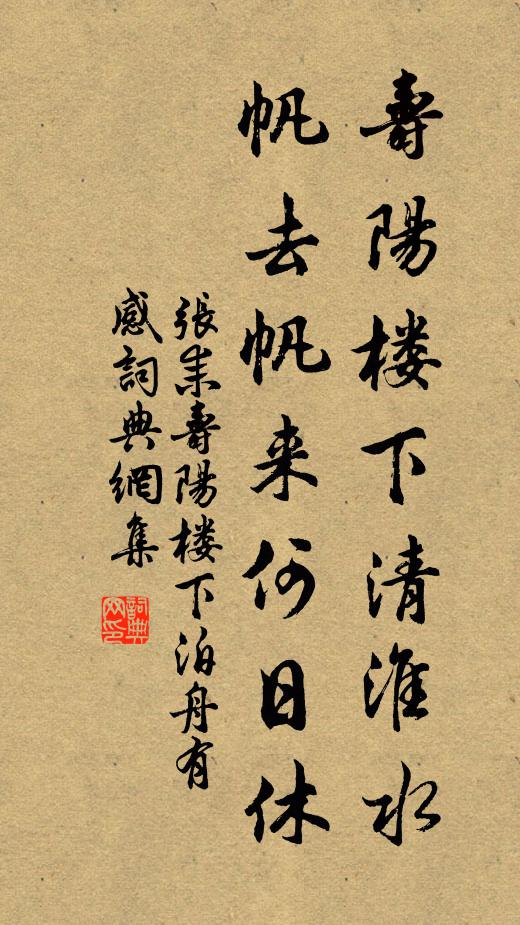 壽陽楼下清淮水
帆去帆来何日休
張耒壽陽楼下泊舟有
感詞典網集
詞典
网印